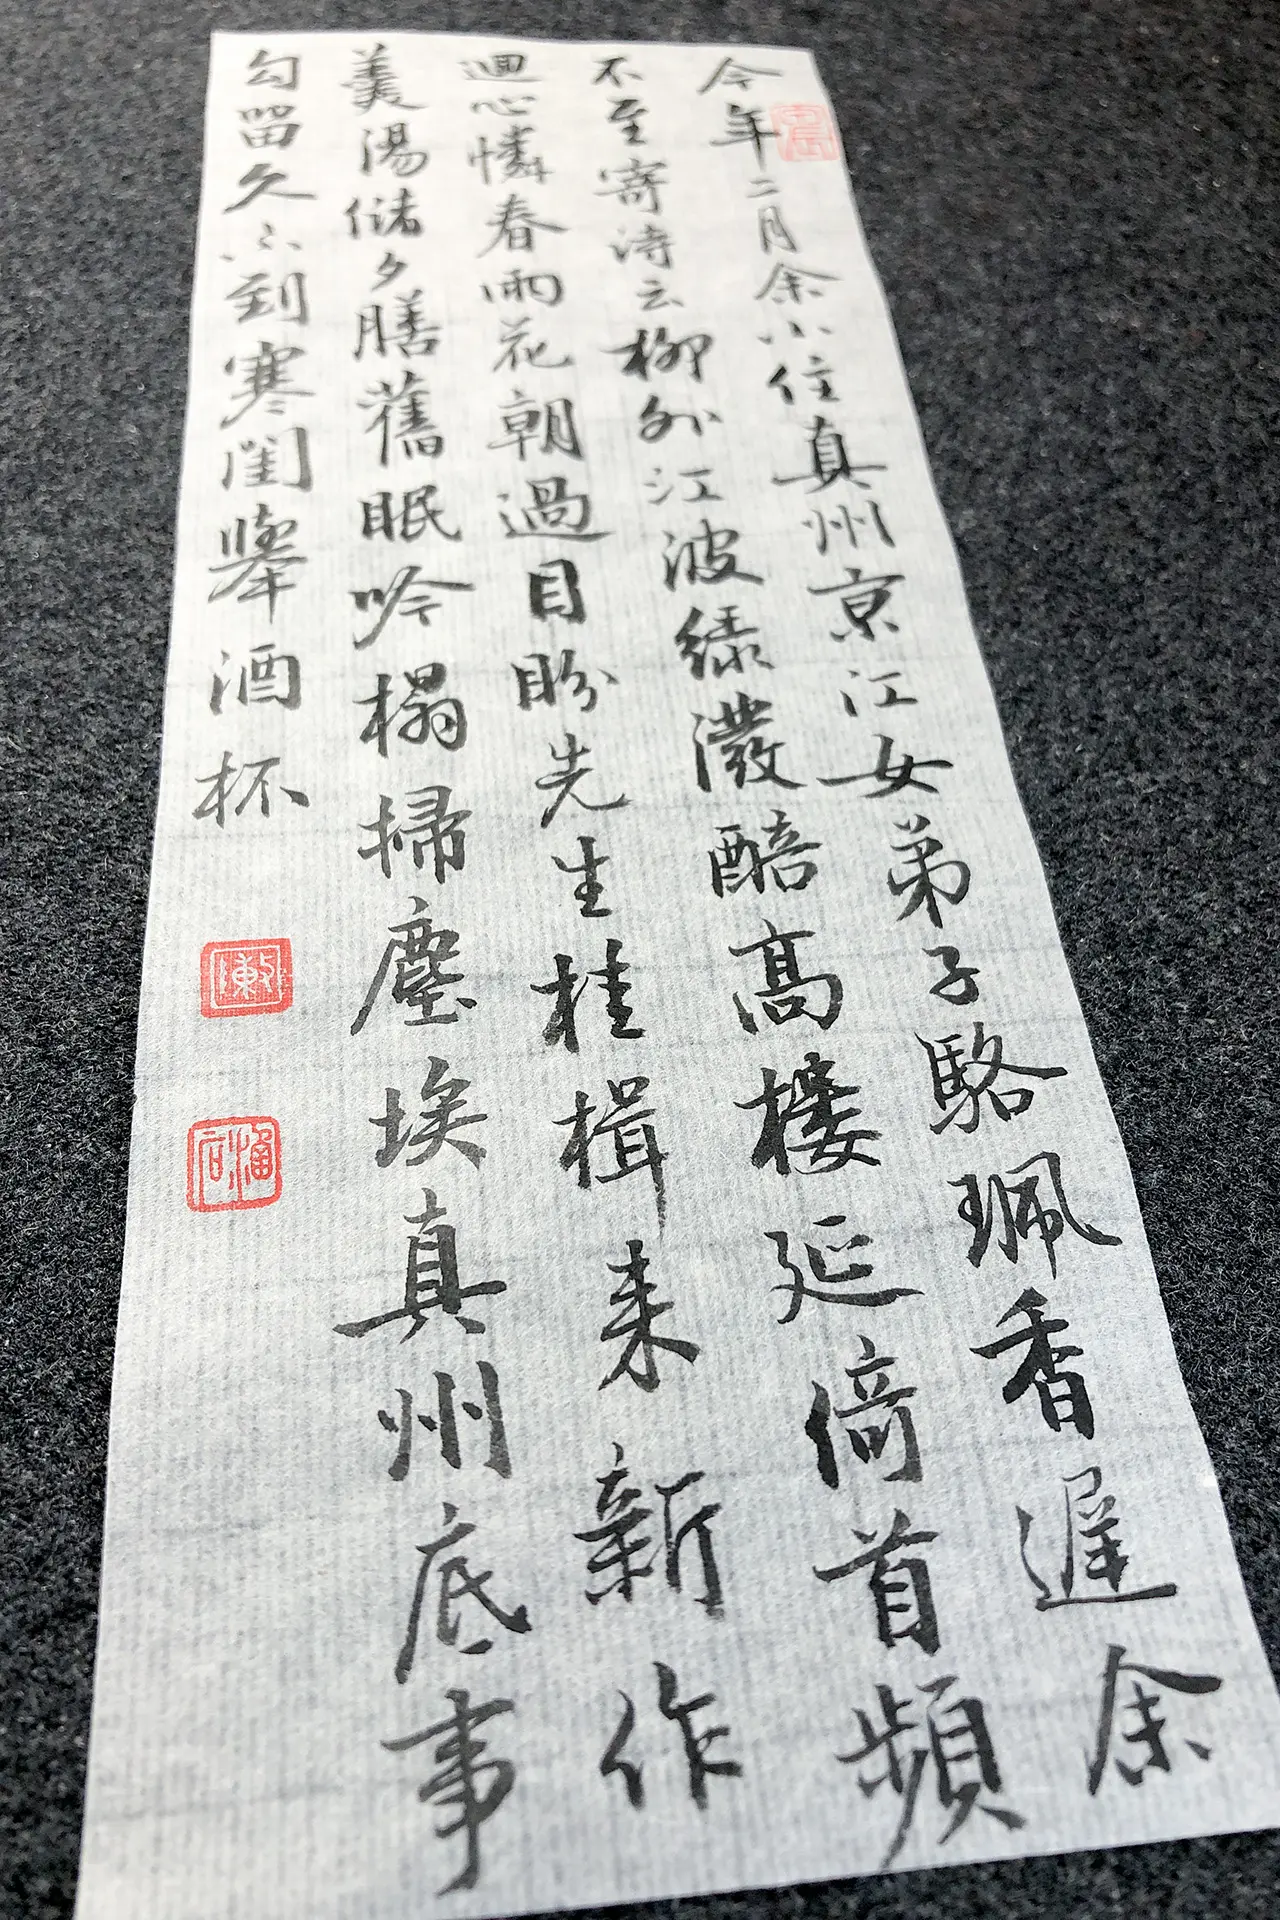 今年二月余小住真州京江女弟子駱珮香遲余
不至寄詩云柳外江波綠潑醅高樓延倚首頻
迴心憐春雨花朝過目盼先生桂楫来新作
羹湯儲夕膳舊眠吟榻掃塵埃真州底事
勾留久不到寒閨舉酒杯